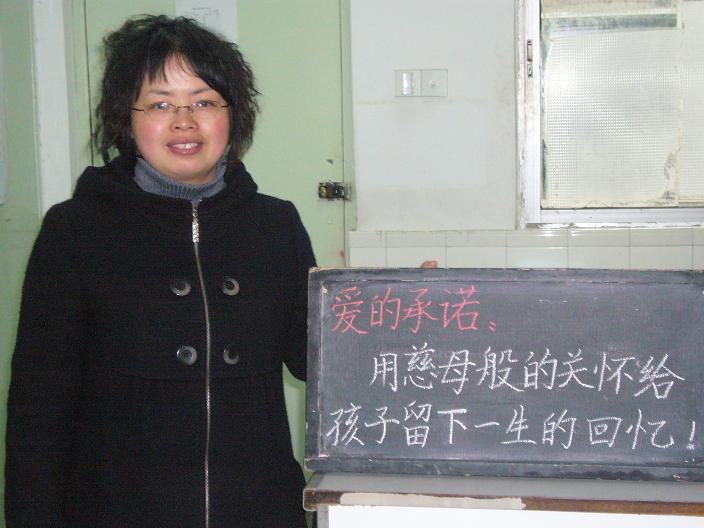 爱的承诺:
用慈母般的关怀给
孩子留下一生的回忆!